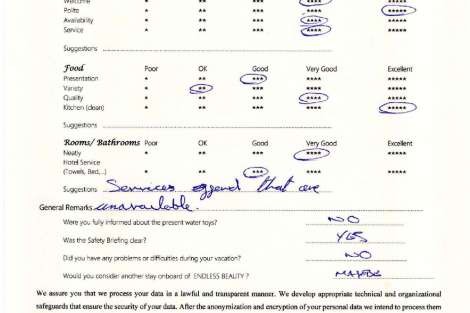 Welcome * ** *** **** *****
Polite * ** *** **** *****
Availability * ** *** **** *****
Service * ** *** **** *****
Suggestions
Food Poor OK Good Very Good Excellent
Presentation * ** *** **** *****
Variety * ** *** **** *****
Quality * ** *** **** *****
Kitchen (clean) * ** *** **** *****
Suggestions
Rooms/ Bathrooms Poor OK Good Very Good Excellent
Neatly * ** *** **** *****
Hotel Service
(Towels, Bed,..) * ** *** **** *****
Suggestions Services that are
General Remarks unavailable.
Were you fully informed about the present water toys? NO
Was the Safety Briefing clear? YES
Did you have any problems or difficulties during your vacation? NO
Would you consider another stay onboard of ENDLESS BEAUTY ? MAYBE
We assure you that we process your data in a lawful and transparent manner. We develop appropriate technical and organizational
safeguards that ensure the security of your data. After the anonymization and encryption of your personal data we intend to process them